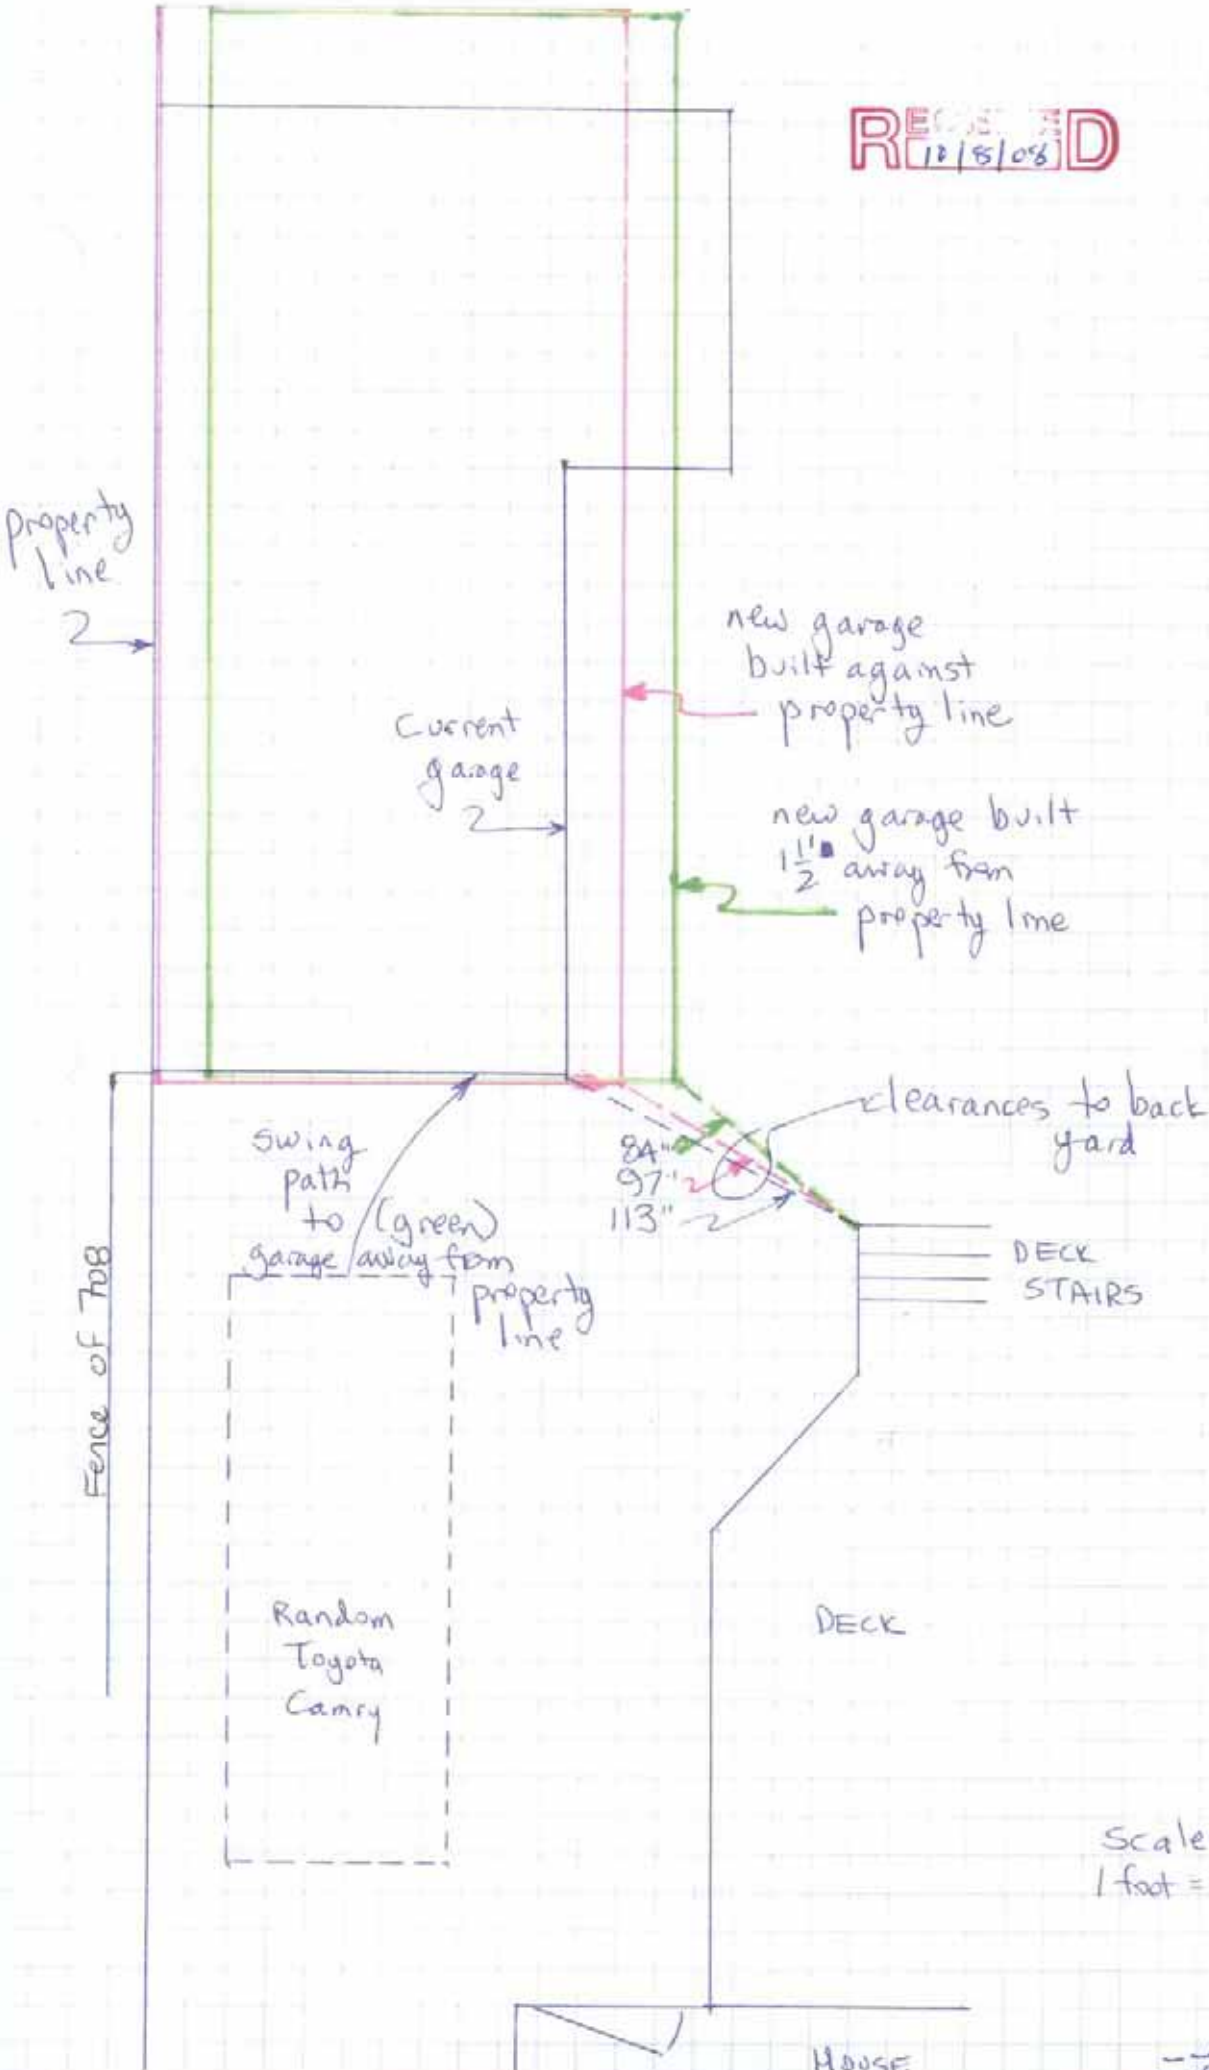 RECEIVED
10/8/08
property
line
new garage
built against
property line
Current
garage
new garage built
1 1/2' away from
property line
clearances to back
yard
84"
97"
113"
Swing
path
to (green)
garage away from
property
line
DECK
STAIRS
Fence of 708
Random
Toyota
Camry
DECK
Scale
1 foot =
HOUSE